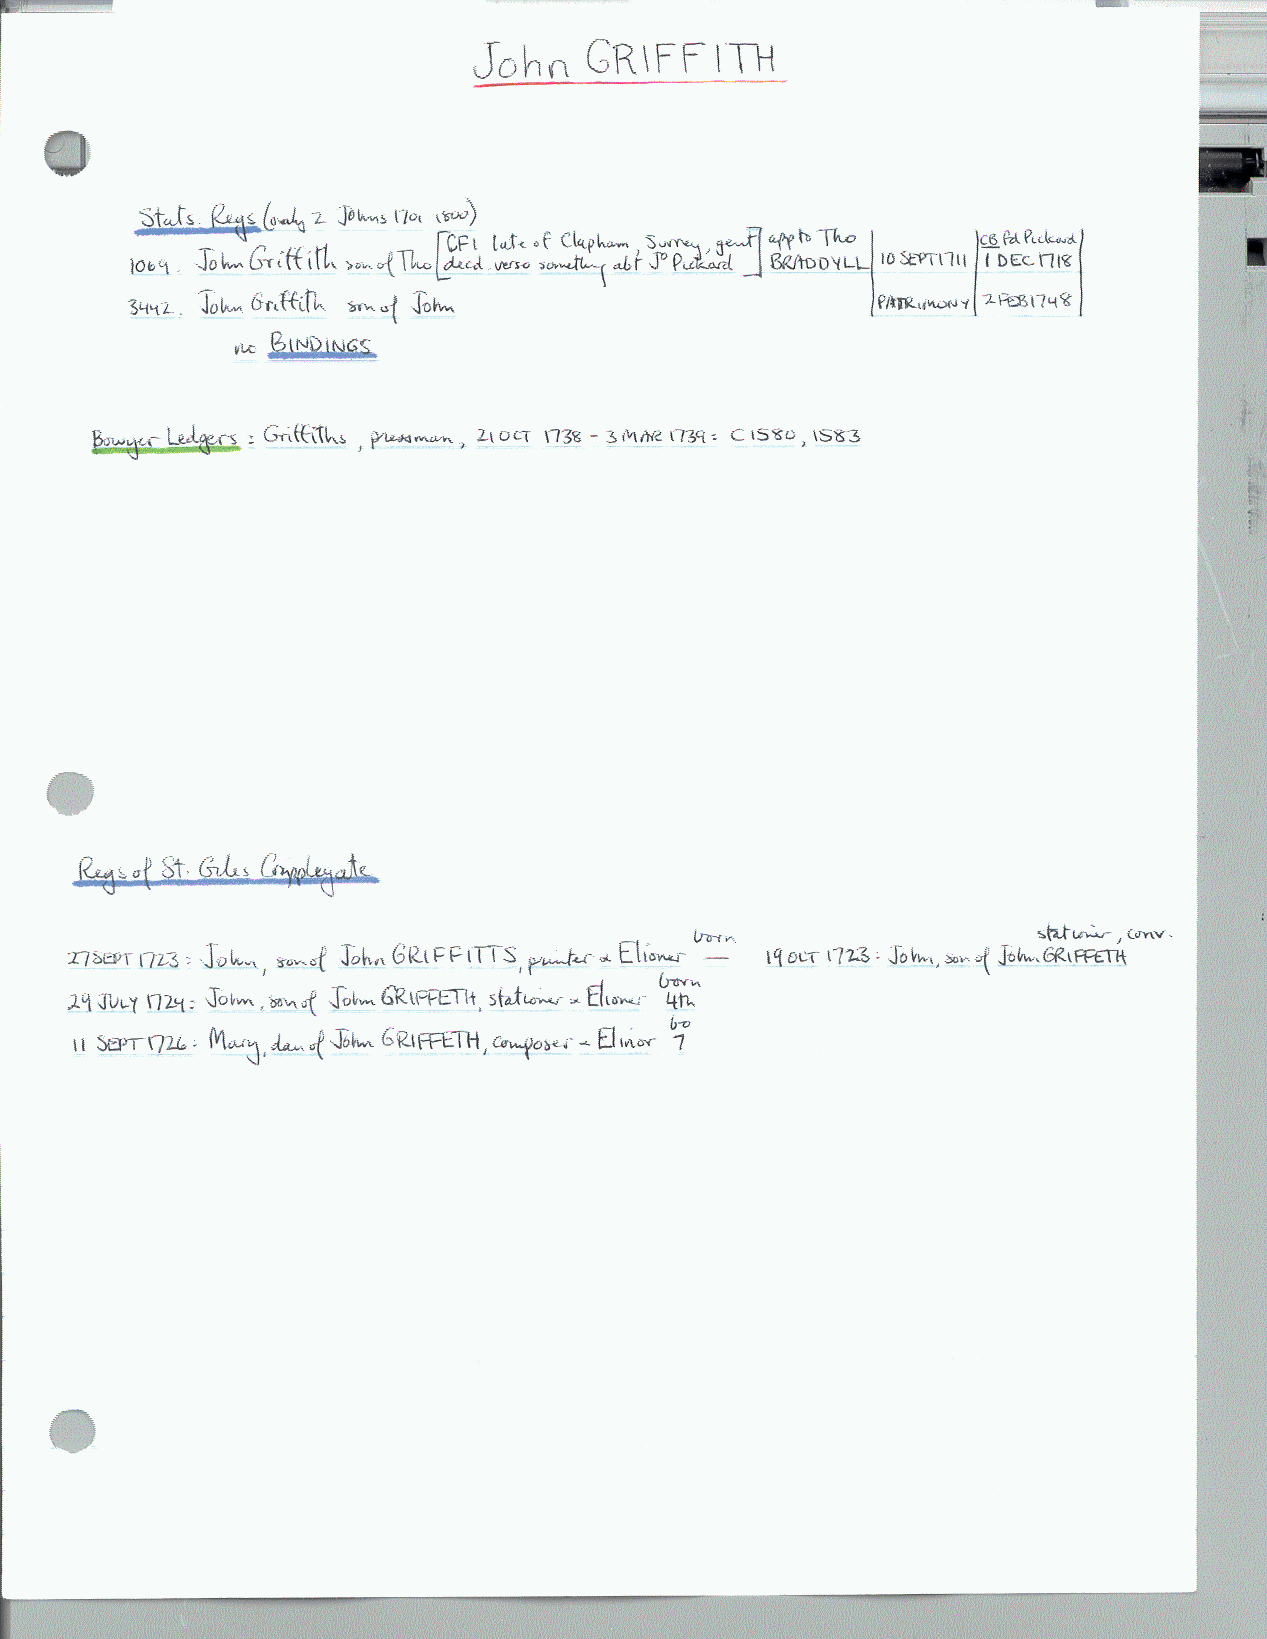 John GRIFFITH
Stats. Regs (only 2 Johns 1701 1800)
CF1 late of Clapham, Surrey, gent app to Tho CB Pd Pickard
1069. John Griffith son of Tho decd verso something abt Jº Pickard BRADDYLL 10 SEPT 1711 1 DEC 1718
3442. John Griffith son of John PATRIMONY 2 FEB 1748
no BINDINGS
Bowyer Ledgers: Griffiths, pressman, 21 OCT 1738 - 3 MAR 1739: C1580, 1583
Regs of St. Giles Cripplegate
born stationer, conv.
27 SEPT 1723: John, son of John GRIFFITTS, printer & Elioner — 19 OCT 1723: John, son of John GRIFFETH
born
29 JULY 1724: John, son of John GRIFFETH, stationer & Elioner 4th
bo
11 SEPT 1726: Mary, dau of John GRIFFETH, composer & Elinor 7